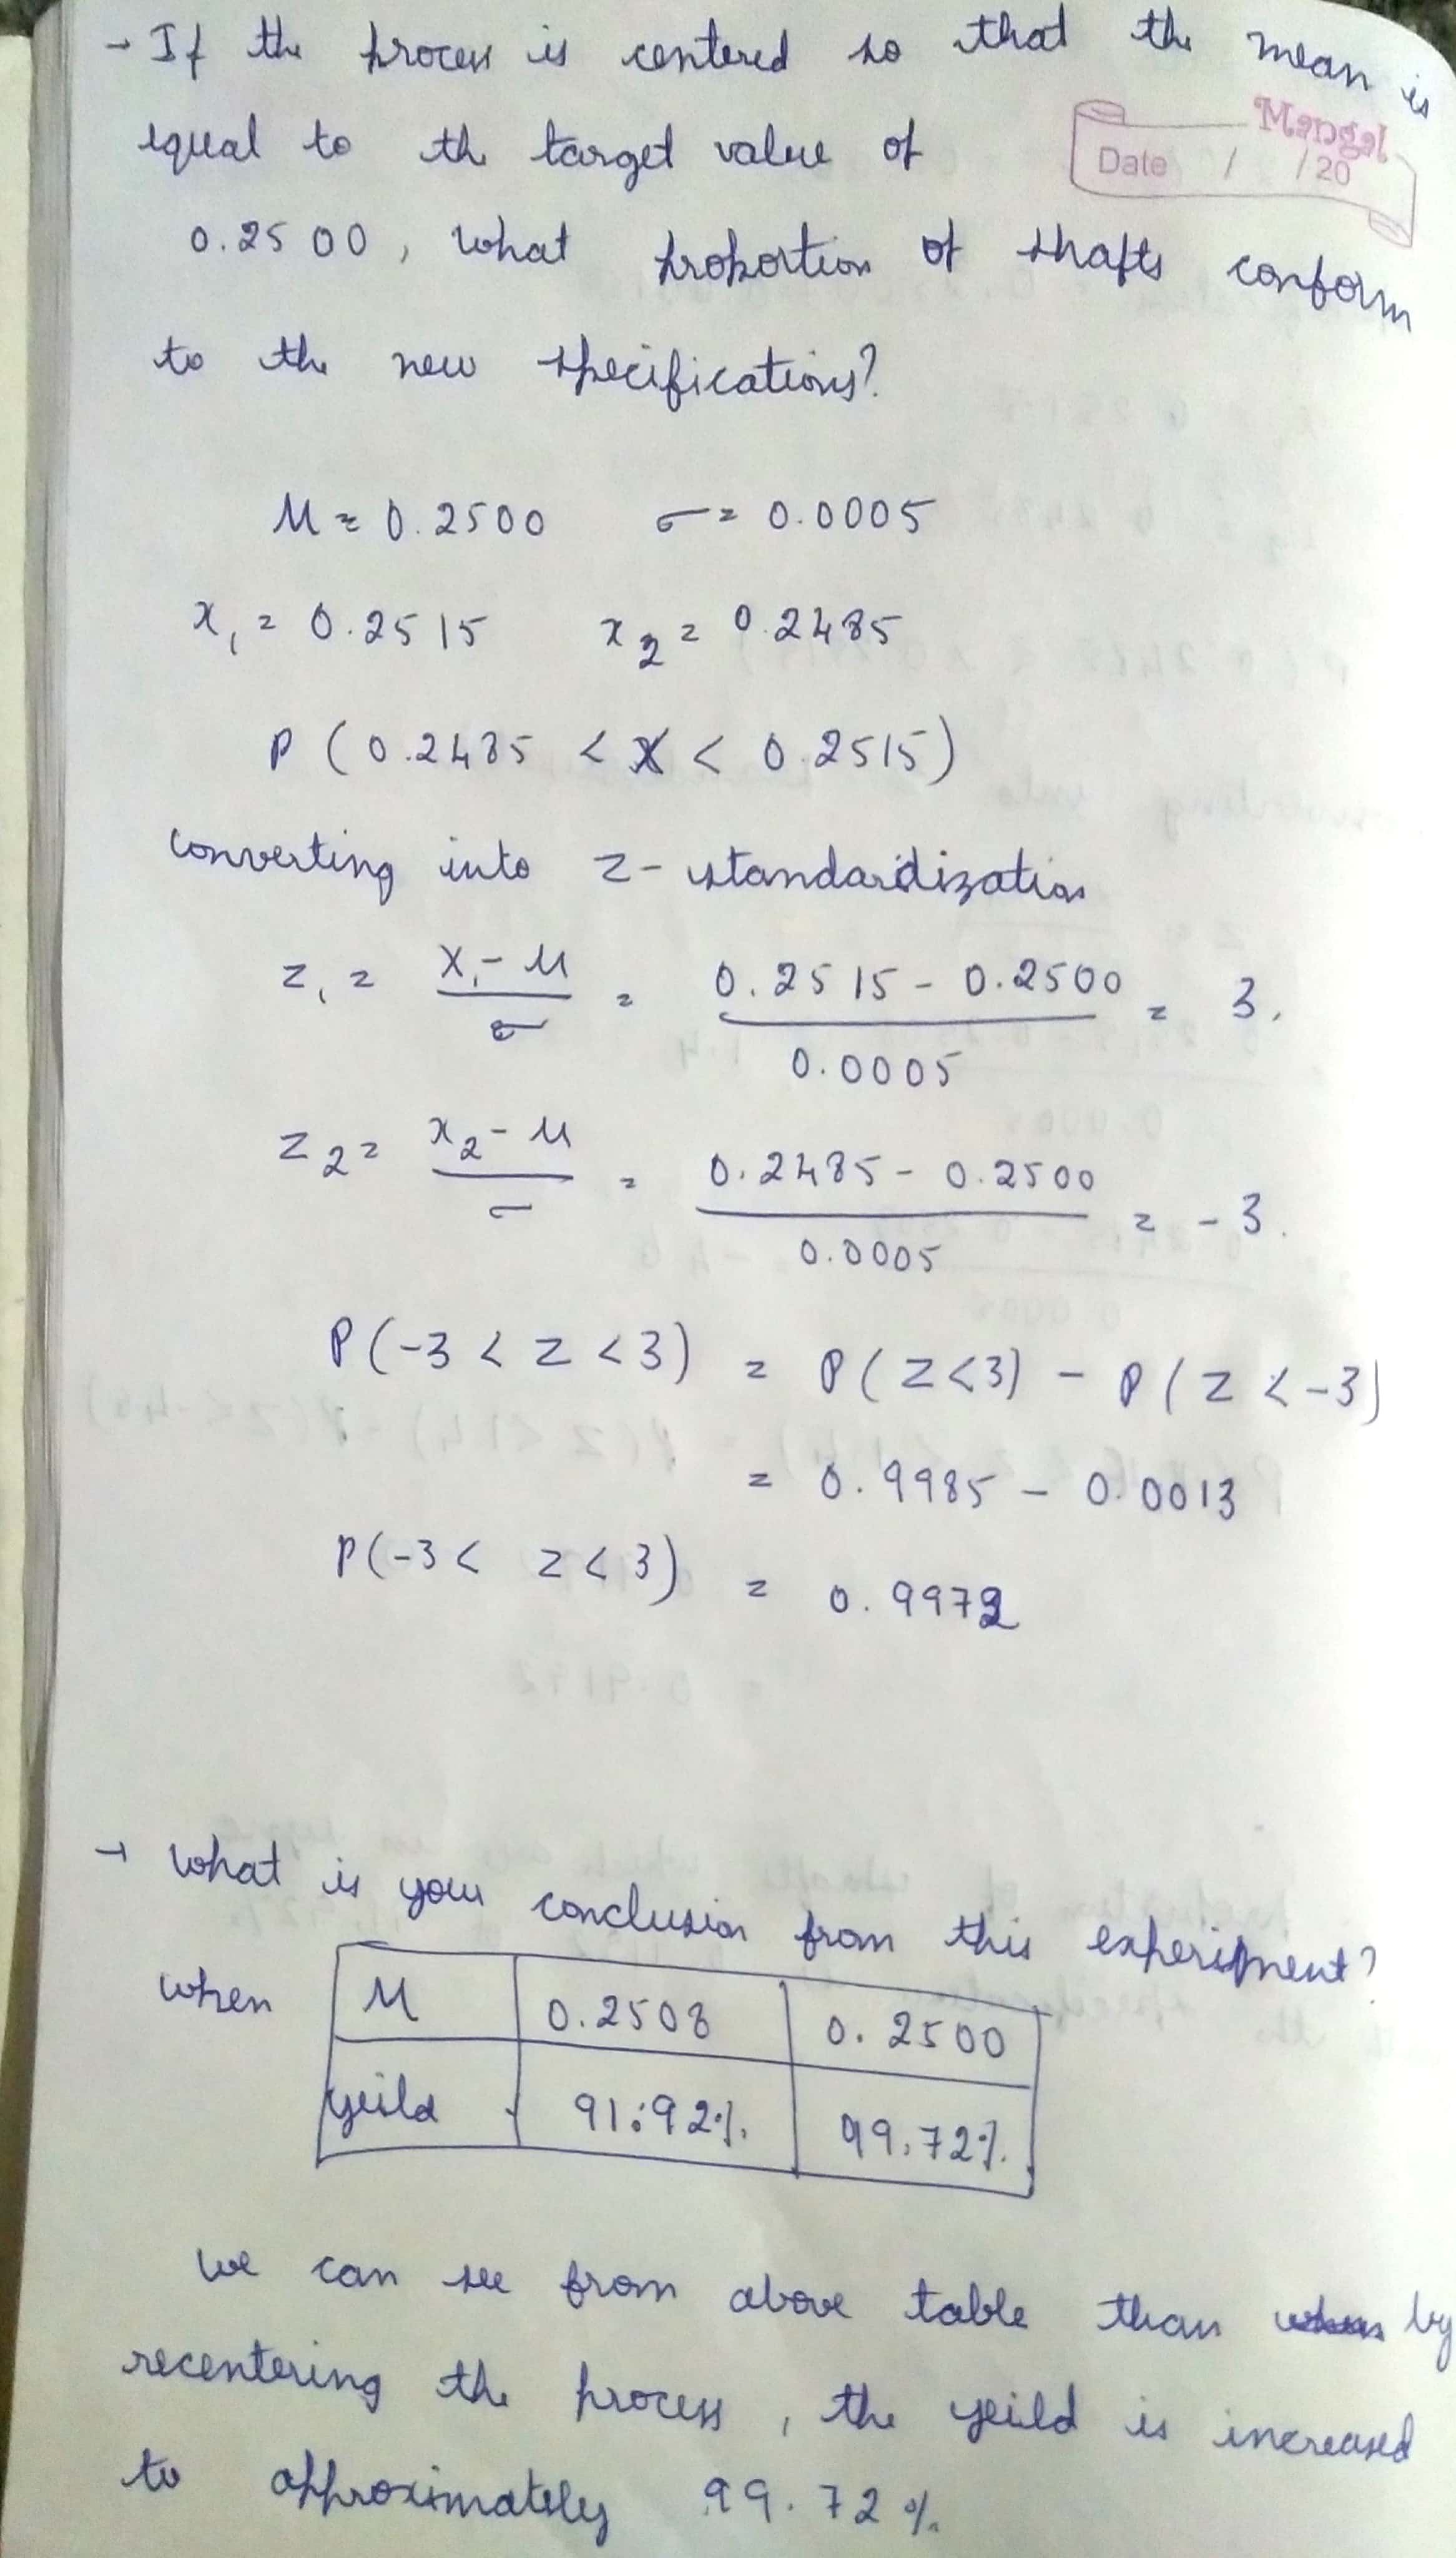 → If the process is centered so that the mean is
equal to the target value of
Mangal
Date / /20
0.2500, what proportion of shafts conform
to the new specifications?
M = 0.2500 σ = 0.0005
x₁ = 0.2515 x₂ = 0.2485
P (0.2485 < X < 0.2515)
converting into z- standardization
z₁ = X₁ - M / σ = 0.2515 - 0.2500 / 0.0005 = 3.
z₂ = x₂ - M / σ = 0.2485 - 0.2500 / 0.0005 = -3.
P(-3 < z < 3) = P(Z<3) - P(Z<-3)
= 0.9985 - 0.0013
P(-3 < z < 3) = 0.9972
→ What is your conclusion from this experiment?
when M 0.2508 0.2500
yeild 91.92% 99.72%
we can see from above table than by
recentering the process, the yeild is increased
to approximately 99.72%.